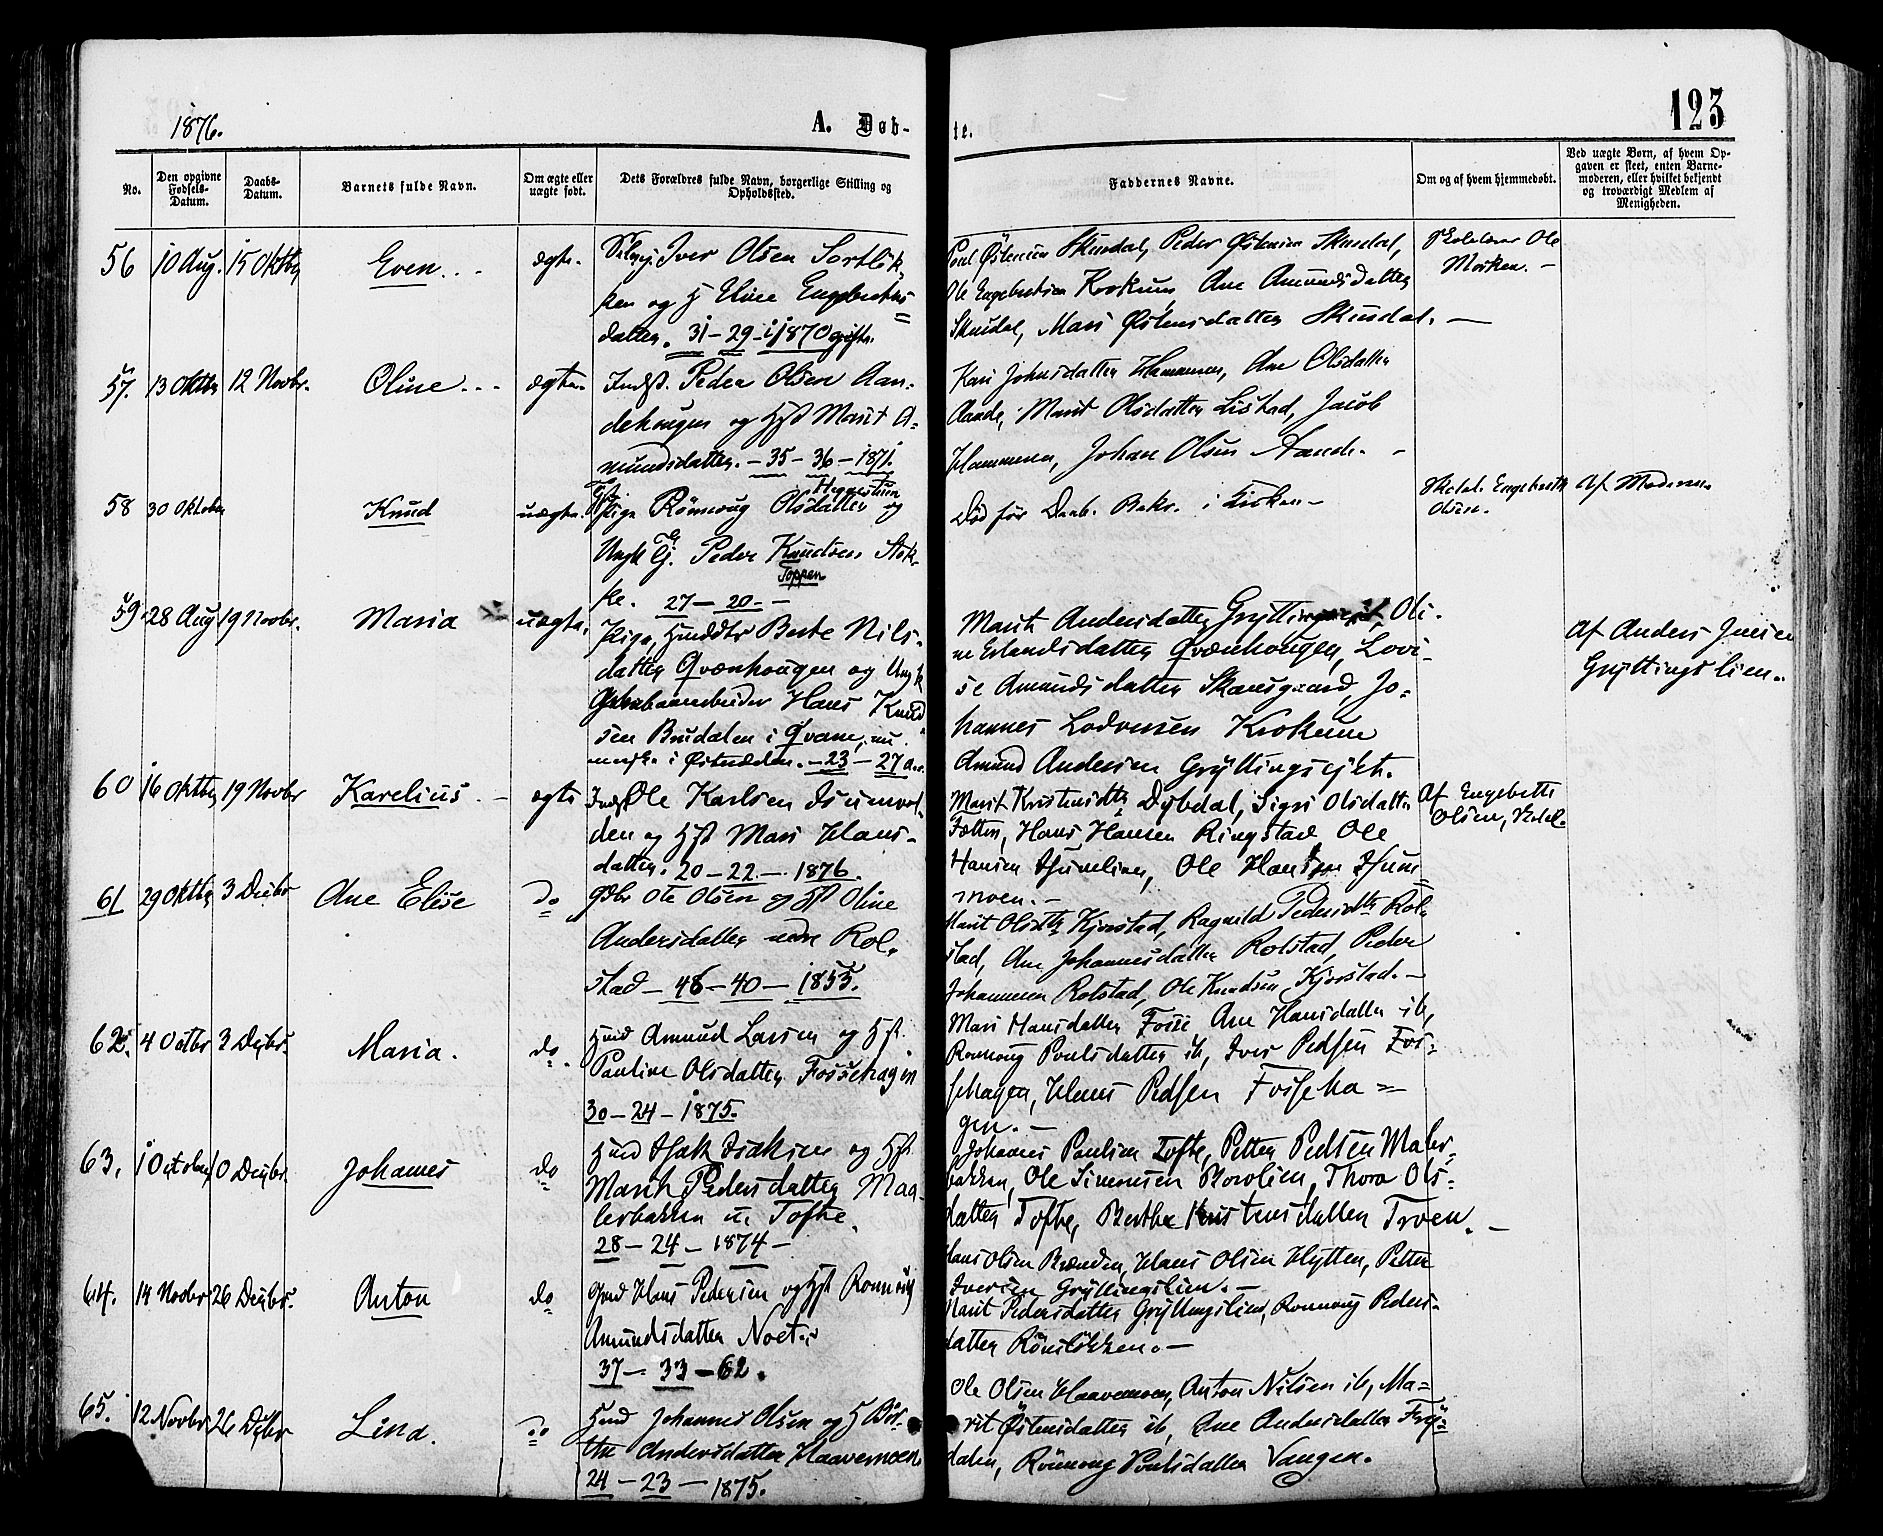 1876.
A. Døb-
te.
123
No.
Den opgivne Fødsels-Datum.
Daabs-Datum.
Barnets fulde Navn.
Om ægte eller uægte født.
Dets Forældres fulde Navn, borgerlige Stilling og Opholdssted.
Faddernes Navne.
Om og af hvem hjemmedøbt.
Ved uægte Børn, af hvem Op-
gaven er skeet, enten Barne-
moderen, eller hvilket bekjendt
og troværdigt Medlem af
Menigheden.
56 10 Aug. 15 Oktbr Even ægte. Iver Olsen Sortløk-
ken og H Eline Engebrets
datter. 31-29-1870 gifte.
Poul Østensen Skurdal, Peder Østensen Skurdal,
Ole Engebretsen Krokum, Ane Amundsdatter
Skurdal, Mari Østensdatter Skurdal.
Skolelærer Ole
Morken.
57. 13 Oktbr 12 Novbr. Oline ægte. Indst. Peder Olsen Aan-
dehougen og Hst Marit A-
mundsdatter. - 35 - 36 - 1871.
Kari Johnsdatter Hammeren, Ane Olsdatter
Aande, Marit Olsdatter Listad, Jacob
Hammeren, Johan Olsen Aande.
58 30 Oktober Knud uægte. Pige Rønnoug Olsdatter og
Ungk Tj. Peder Knudsen Stok-
ke. Toppen 27-20.-
Død før Daab. Bekr. i Kirken-
Skolel. Engebrett
Olsen.
Af Moderen
59. 28 Aug 19 Novbr. Maria uægte. Pige, Berte Nils-
datter Qvænhougen og Ungk
Hans Knud
sen Brudalen i Qvam, nu
i Østerdalen. - 23 - 27 Aar.
Marit Andersdatter Oli-
ne Erlandsdatter Qvænhougen, Lovi-
se Amundsdatter Skansgaard, Jo-
hannes Lodvensen Krokum
Amund Andersen Gryttingsejet.
Af Anders Jensen
Gryttingslien.
60 16 Oktbr 19 Novbr Karelius ægte Indst Ole Karlsen Isumvol-
den og Hst Mari Hans-
datter. 20-22-1876.
Marit Kristensdtr Dybdal, Sigri Olsdatter
Hans Hansen Ringstad Ole
Hansen Isumlien, Ole Hansen Isum-
moen.-
Af Engebrett
Olsen, Skolel.
61 29 Oktbr 3 Decbr Ane Elise do Gbr Ole Olsen og Hst Oline
Andersdatter ndre Rol-
stad - 48-40-1853.
Marit Olsdtr Kjorstad, Ragnild Pedersdtr Rol-
stad, Ane Johannesdatter Rolstad, Peder
Johannesen Rolstad, Ole Knudsen Kjorstad.-
62. 4 Octbr 3 Decbr. Maria. do. Hmd Amund Larsen og Hst.
Pauline Olsdatter Fossehagen
30-24-1875.
Mari Hansdatter Fosse, Ane Hansdatter ib,
Rønnoug Poulsdatter ib, Iver Pedsen Fos-
sehagen, Hans Pedsen Fosseha-
gen.-
63. 1 October 10 Decbr. Johannes do Hmd Isak Isaksen og Hst
Marit Pedersdatter Maa-
lerbakken u. Tofte.
28-24-1874-
Johannes Paulsen Tofte, Petter Pedsen Maler-
bakken, Ole Simensen Borolien, Thora Ols-
datter Tofte, Berthe Kristensdatter Troen.
64. 14 Novbr 26 Decbr. Anton do Gmd Hans Pedersen og Hst Rønnoug
Amundsdatter Noet
37-33-62.
Hans Olsen Brænden, Hans Olsen Hytten, Petter
Iversen Gryttingslien.-
Marit Pedersdatter Gryttingslien, Rønnoug Peders-
datter Rønsløkken.-
65. 12 Novbr 26 Decbr Lina. do Hmd Johannes Olsen og H Ber-
the Andersdatter Haavemoen.
24-23-1875.
Ole Olsen Haavemoen, Anton Nilsen ib, Ma-
rit Østensdatter ib, Ane Andersdatter Fry-
dalen, Rønnoug Poulsdatter Vangen.